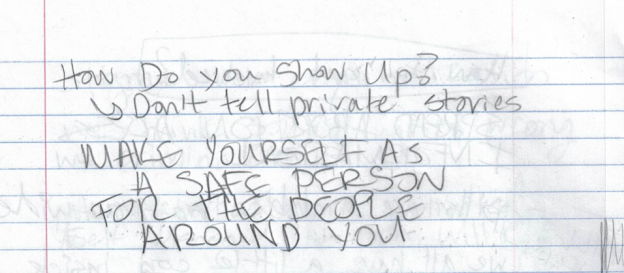 How Do you Show Up?
↳ Don't tell private stories
MAKE YOURSELF AS
A SAFE PERSON
FOR THE PEOPLE
AROUND YOU